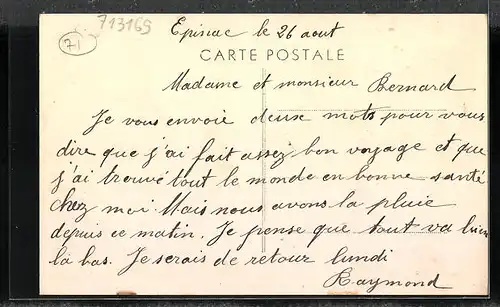 713169
71
Epinac le 26 aout
CARTE POSTALE
Madame et monsieur Bernard
Je vous envoie deux mots pour vous
dire que j'ai fait assez bon voyage et que
j'ai trouvé tout le monde en bonne santé
chez moi. Mais nous avons la pluie
depuis ce matin. Je pense que tout va bien
là bas. Je serais de retour lundi
Raymond